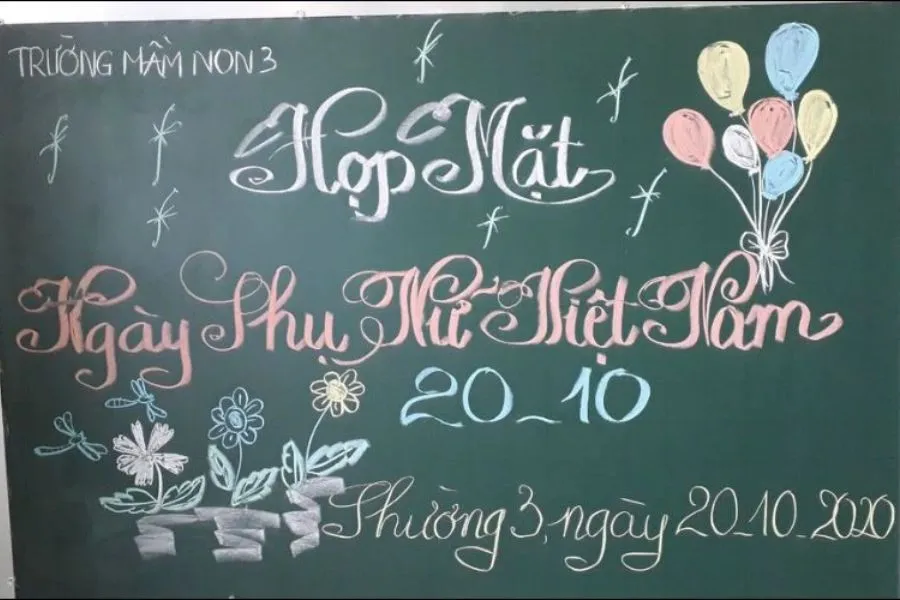 TRƯỜNG MẦM NON 3
Họp Mặt
Ngày Phụ Nữ Việt Nam
20_10
Phường 3, ngày 20_10_2020